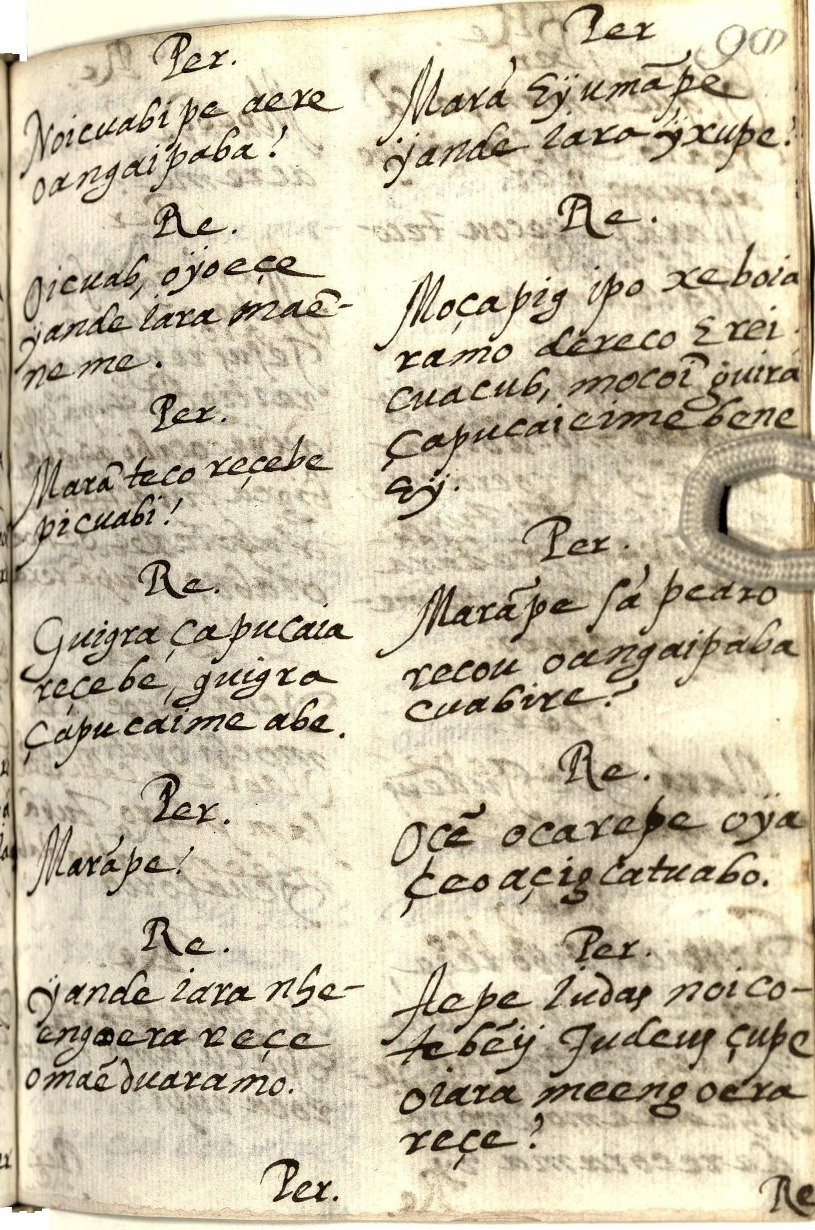 Per.
Noicuabi pe aere
oangaipaba?
Re.
Oicuab, oÿoeçe
yande iara maẽ-
neme.
Per.
Marã teco reçebe
picuabi?
Re.
Guigra çapucaia
reçebe, guigra
çapucaime abe.
Per.
Marãpe?
Re.
ÿande iara nhe-
engoera reçe
omaẽduaramo.
Per.
Per
Marã Eÿumã pe
ÿande iara ÿxupe?
Re.
Moçapig ipo xeboia
ramo dereco Erei
cuacub, mocoĩ guira
çapucaieime bene
Eÿ.
Per.
Marãpe sã pedro
recou oangaipaba
cuabire?
Re.
Ocẽ ocarepe oÿa
çeoaçig catuabo.
Per.
Aepe Iudas noico-
tebẽÿ Judeus çupe
oiara meengoera
reçe?
Re